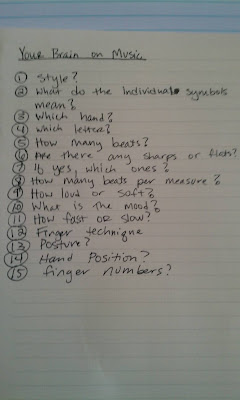 Your Brain on Music
① Style?
② What do the individual symbols
mean?
③ Which hand?
④ Which letter?
⑤ How many beats?
⑥ Are there any sharps or flats?
⑦ If yes, which ones?
⑧ How many beats per measure?
⑨ How loud or soft?
⑩ What is the mood?
⑪ How fast or slow?
⑫ Finger technique
⑬ Posture?
⑭ Hand Position?
⑮ finger numbers?